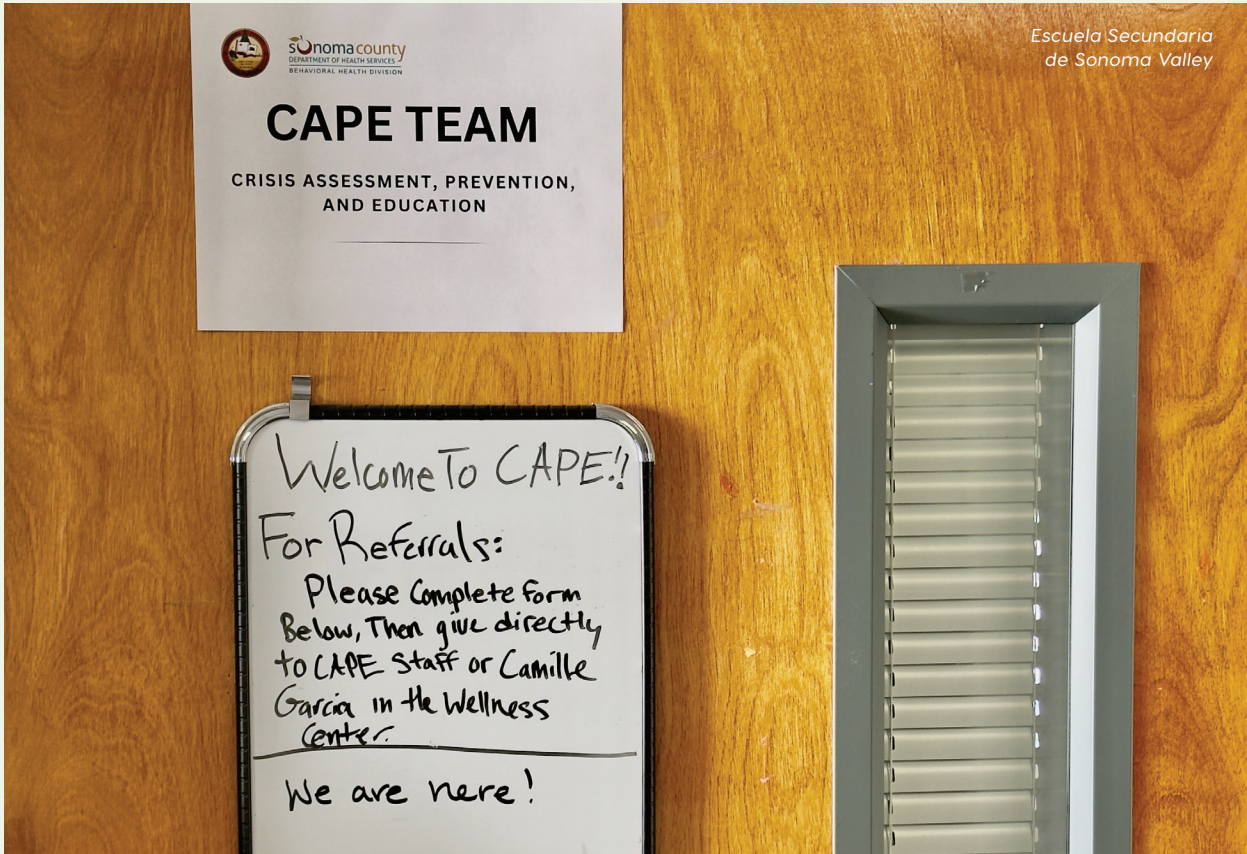 Escuela Secundaria
de Sonoma Valley
sonomacounty
DEPARTMENT OF HEALTH SERVICES
BEHAVIORAL HEALTH DIVISION
CAPE TEAM
CRISIS ASSESSMENT, PREVENTION,
AND EDUCATION
Welcome To CAPE!!
For Referrals:
Please Complete form
Below, Then give directly
to CAPE Staff or Camille
Garcia in the Wellness
Center.
We are here!